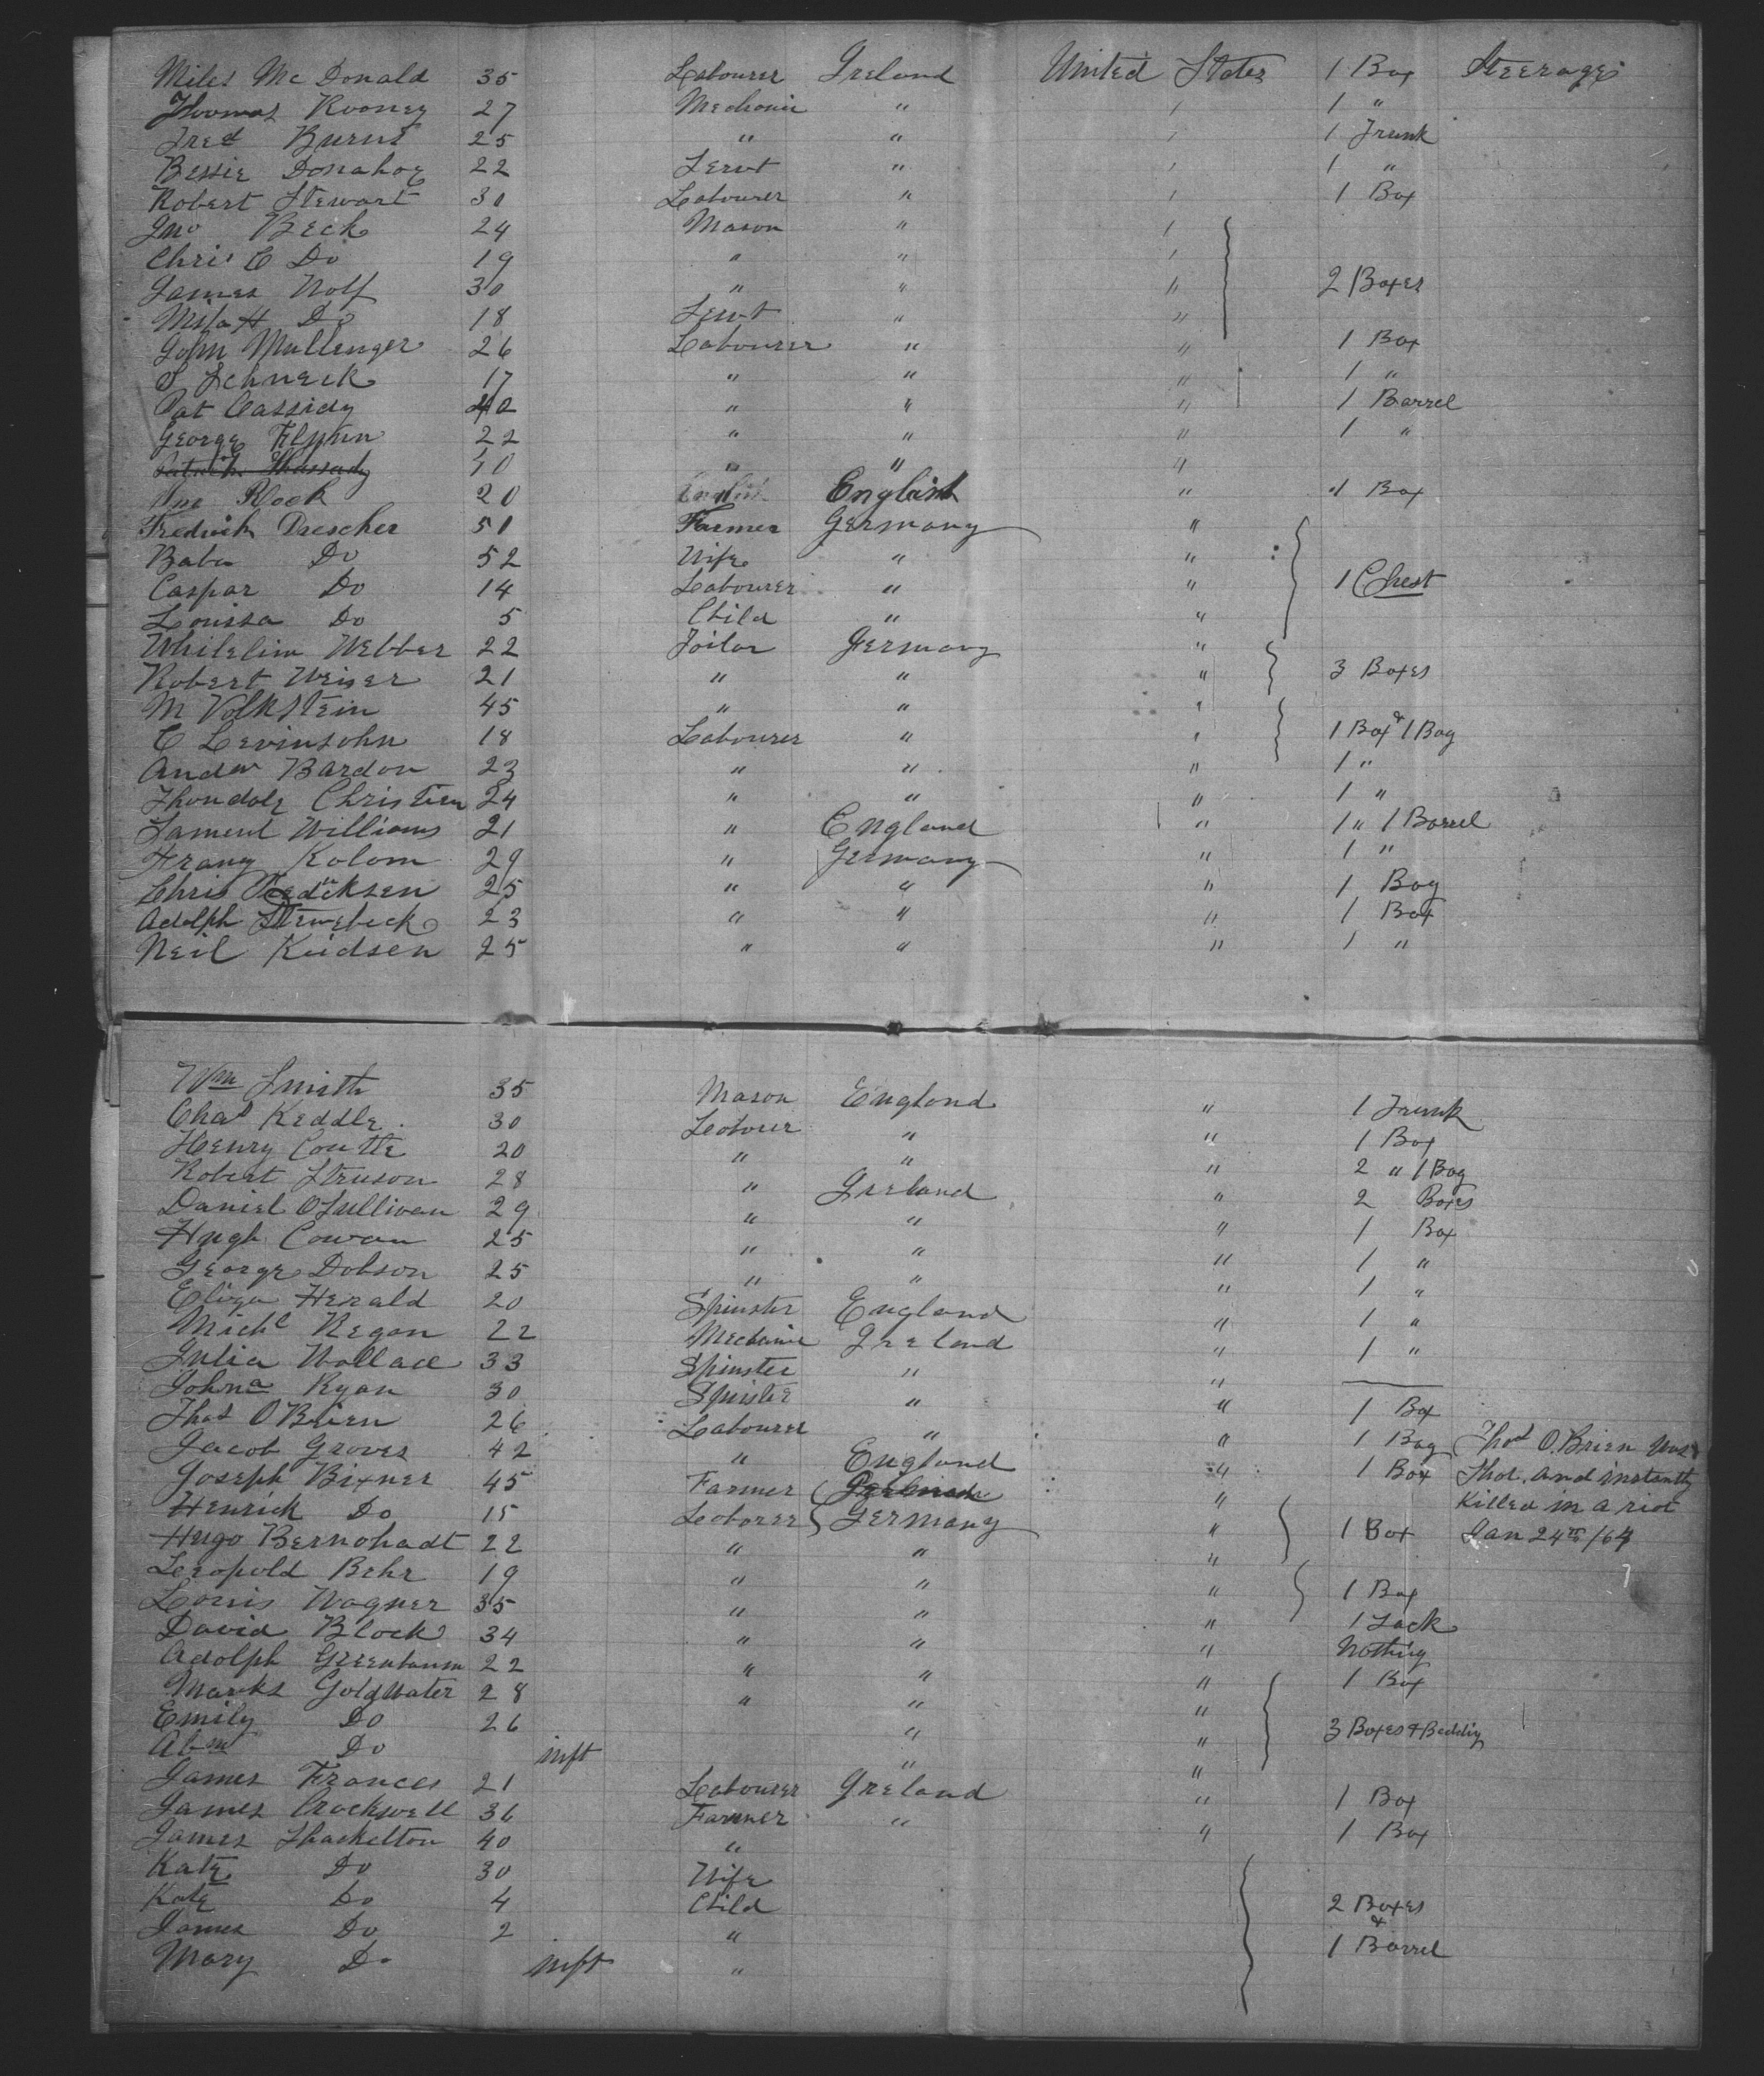 Miles McDonald 35 Labourer Ireland United States 1 Box Steerage
Thomas Rooney 27 Mechanic " " 1 "
Fred Burns 25 " " " 1 Trunk
Bessie Donahoe 22 Servt " " 1 "
Robert Stewart 30 Labourer " " 1 Box
Jno Beck 24 Mason " "
Chris C Do 19 " " "
James Wolf 30 " " " 2 Boxes
Do 18 Servt " "
John Mullenger 26 Labourer " " 1 Box
S Schneck 17 " " " 1 "
Pat Cassidy 40 " " " 1 Barrel
George 22 " " " 1 "
30 " " "
Rook 20 English " 1 Box
Fredrick Drescher 51 Farmer Germany "
Baba Do 52 Wife " "
Caspar Do 14 Labourer " " 1 Chest
Louisa Do 5 Child " "
Whilelim Webber 22 Tailor Germany "
Robert Weiser 21 " " " 3 Boxes
M Volkstein 45 " " "
C Levinsohn 18 Labourer " " 1 Box & 1 Bag
Andw Bardon 23 " " " 1 "
Thondole Christien 24 " " " 1 "
Samuel Williams 21 " England " 1 " 1 Barrel
Franz Kolom 29 " Germany " 1 "
Chris Fredricksen 25 " " " 1 Bag
Adolph Stewebeck 23 " " " 1 Box
Neil Knidsen 25 " " " 1 "
Wm Smith 35 Mason England " 1 Trunk
Chas Keddle 30 Labourer " " 1 Box
Henry Coutte 20 " " " 2 " 1 Bag
Robert Struson 28 " Ireland " 2 Boxes
Daniel O'Sullivan 29 " " " 1 Box
Hugh Cowan 25 " " " 1 "
George Dobson 25 " " " 1 "
Eliza Herald 20 Spinster England " 1 "
Michl Regan 22 Mechanic Ireland " 1 "
Julia Wallace 33 Spinster " "
Johna Ryan 30 Spinster " " 1 Box
Thos O'Brien 26 Labourer " " 1 Bag Thos O.Brien was
Jacob Groves 42 " England " 1 Box Shot and instantly
Joseph Bixner 45 Farmer " Killed in a riot
Henrick Do 15 Laborer Germany " 1 Box Jan 24th /64
Hugo Bernohadt 22 " " "
Leopold Behr 19 " " " 1 Box
Louis Wagner 35 " " " 1 Sack
David Block 34 " " " Nothing
Adolph Greenbaum 22 " " " 1 Box
Marks Goldwater 28 " " "
Emily Do 26 " " 3 Boxes & Bedding
Abm Do inft " "
James Frances 21 Labourer Ireland " 1 Box
James Crockwell 36 Farmer " " 1 Box
James Shackelton 40 "
Kate Do 30 Wife
Kate Do 4 Child 2 Boxes
James Do 2 " &
Mary Do inft " 1 Barrel